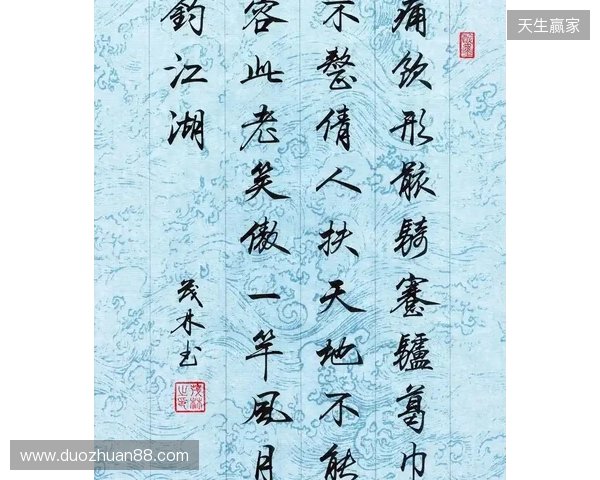 天生赢家
痛飲形骸騎蹇驢葛巾
不整倩人扶天地不能
容此老笑傲一竿風月
釣江湖
茂林书
www.duozhuan88.com